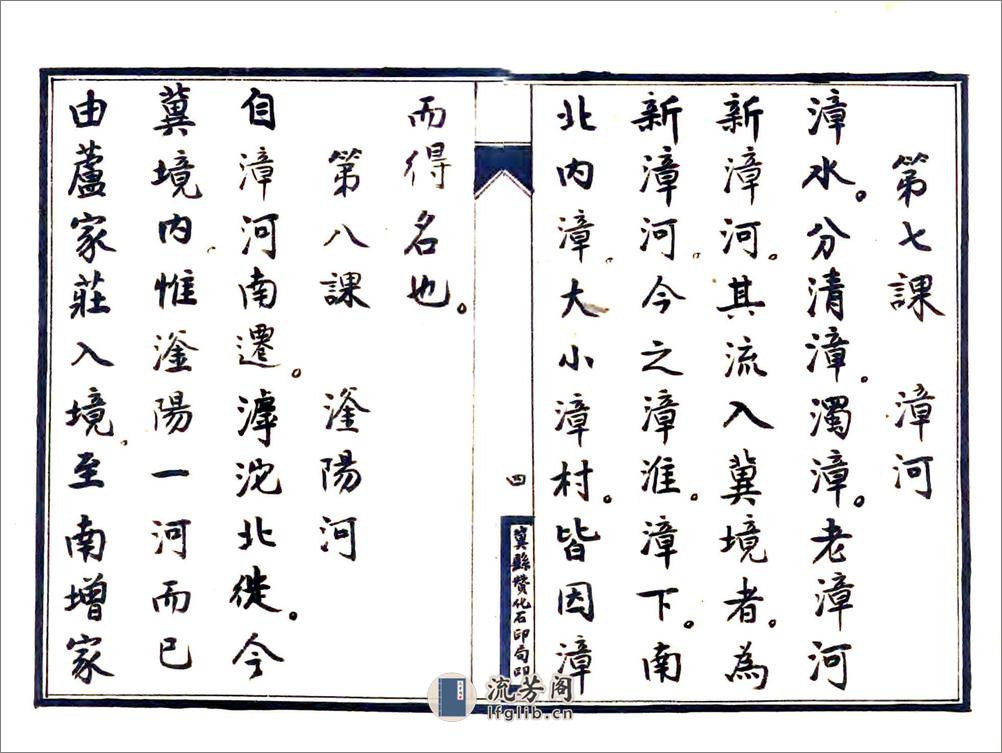 第七課　漳河
漳水。分清漳。濁漳。老漳河
新漳河。其流入冀境者。為
新漳河。今之漳淮。漳下。南
北内漳。大小漳村。皆因漳
四
冀縣贊化石印局印
而得名也。
第八課　滏陽河
自漳河南遷。滹沱北徙。今
冀境内。惟滏陽一河而已
由蘆家莊入境。至南增家
流芳阁
lfglib.cn